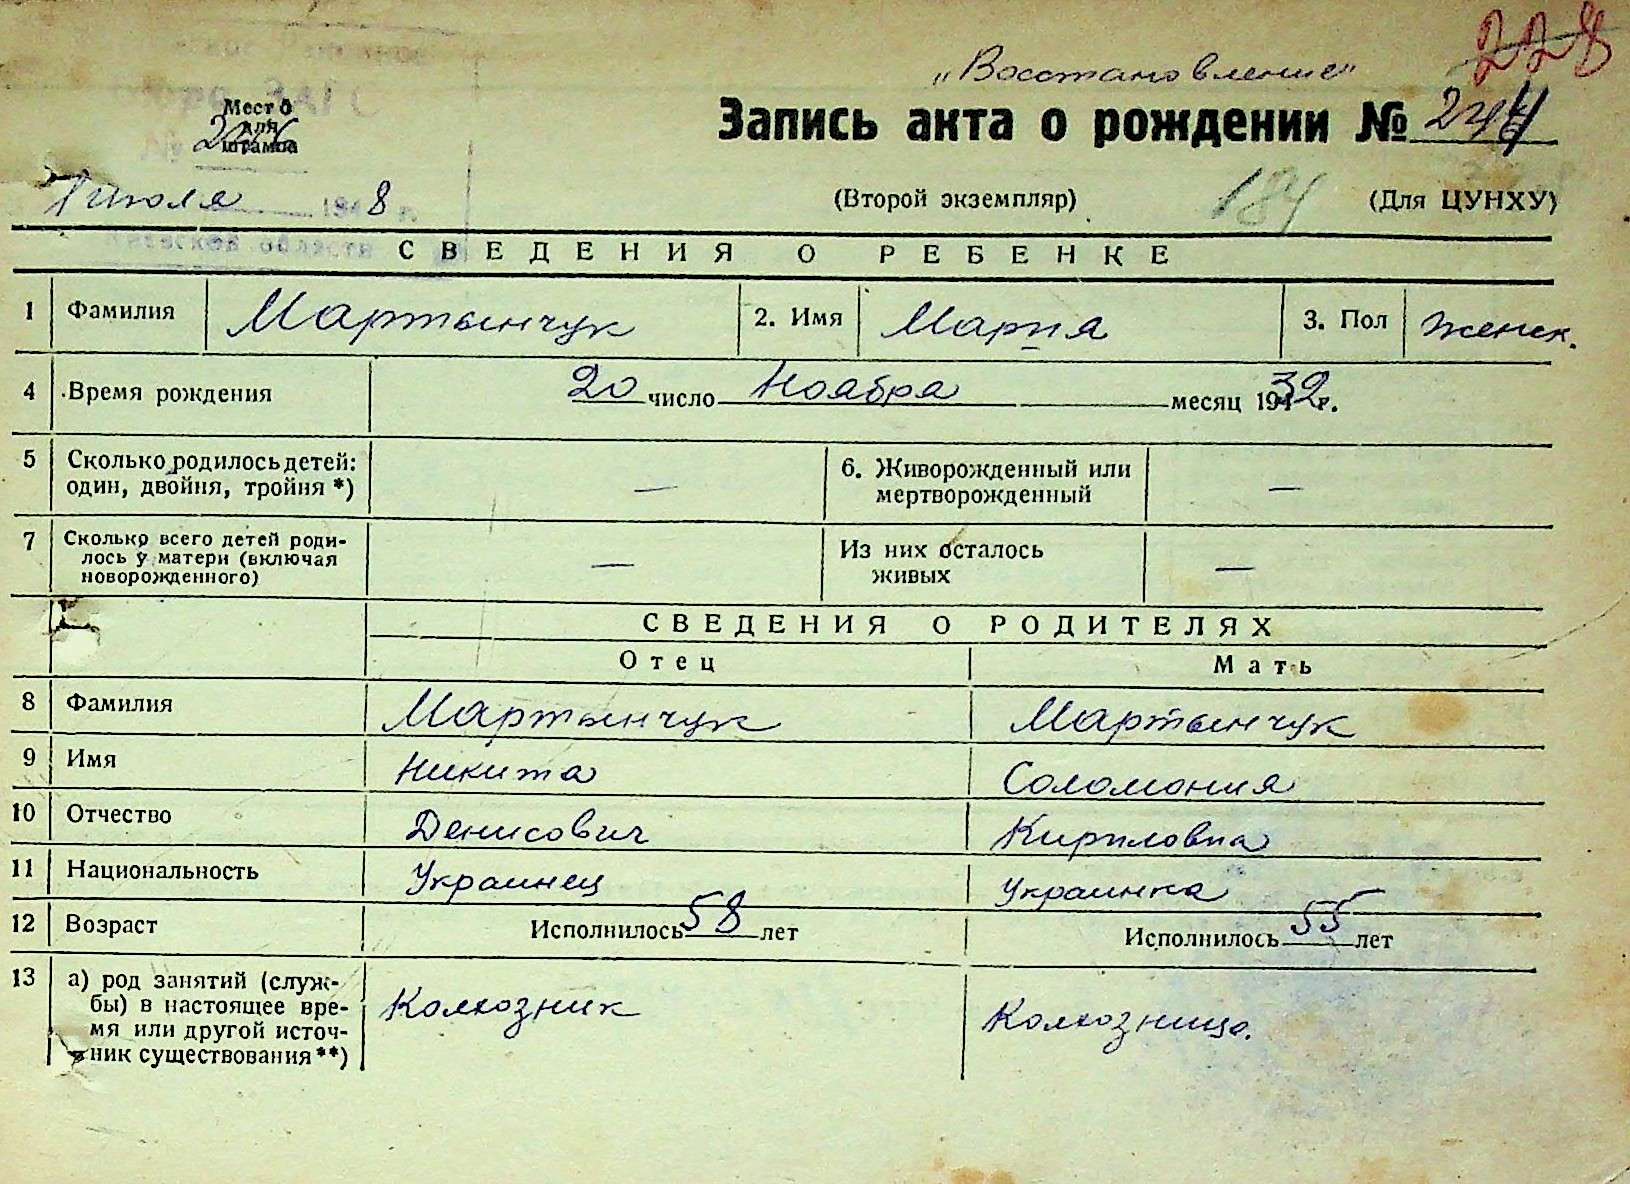 228
„Восстановление"
Место
для
штампа
Запись акта о рождении № 244
июля 1948 г.
(Второй экземпляр)
184
(Для ЦУНХУ)
области
СВЕДЕНИЯ О РЕБЕНКЕ
1 Фамилия Мартынчук 2. Имя Мария 3. Пол женск.
4 Время рождения 20 число Ноября месяц 1932 г.
5 Сколько родилось детей: один, двойня, тройня *) —
6. Живорожденный или мертворожденный —
7 Сколько всего детей роди-
лось у матери (включая
новорожденного) —
Из них осталось
живых —
СВЕДЕНИЯ О РОДИТЕЛЯХ
Отец Мать
8 Фамилия Мартынчук Мартынчук
9 Имя Никита Соломония
10 Отчество Денисович Кириловна
11 Национальность Украинец Украинка
12 Возраст Исполнилось 58 лет Исполнилось 55 лет
13 а) род занятий (служ-
бы) в настоящее вре-
мя или другой источ-
ник существования **)
Колхозник Колхозница.